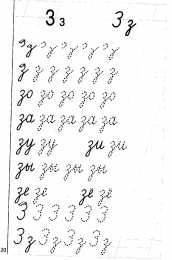 З з З з
з з з з з з
з з з з з з з
зо зо зо зо зо
за за за за за
зу зу зи зи
зы зы зы зы
зе зе зе зе
З З З З З
З з З з З з З з
20